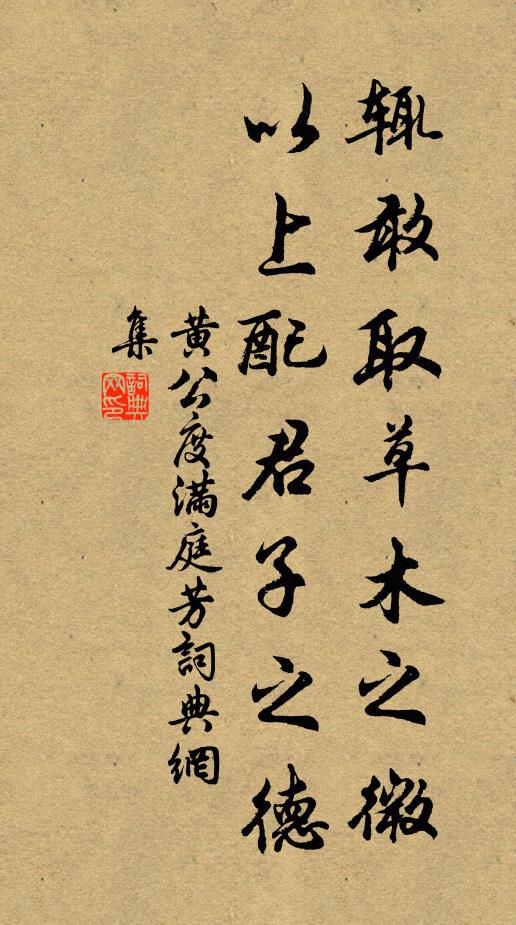 辄敢取草木之微
以上配君子之德
黄公度滿庭芳詞典網
集
詞典網印